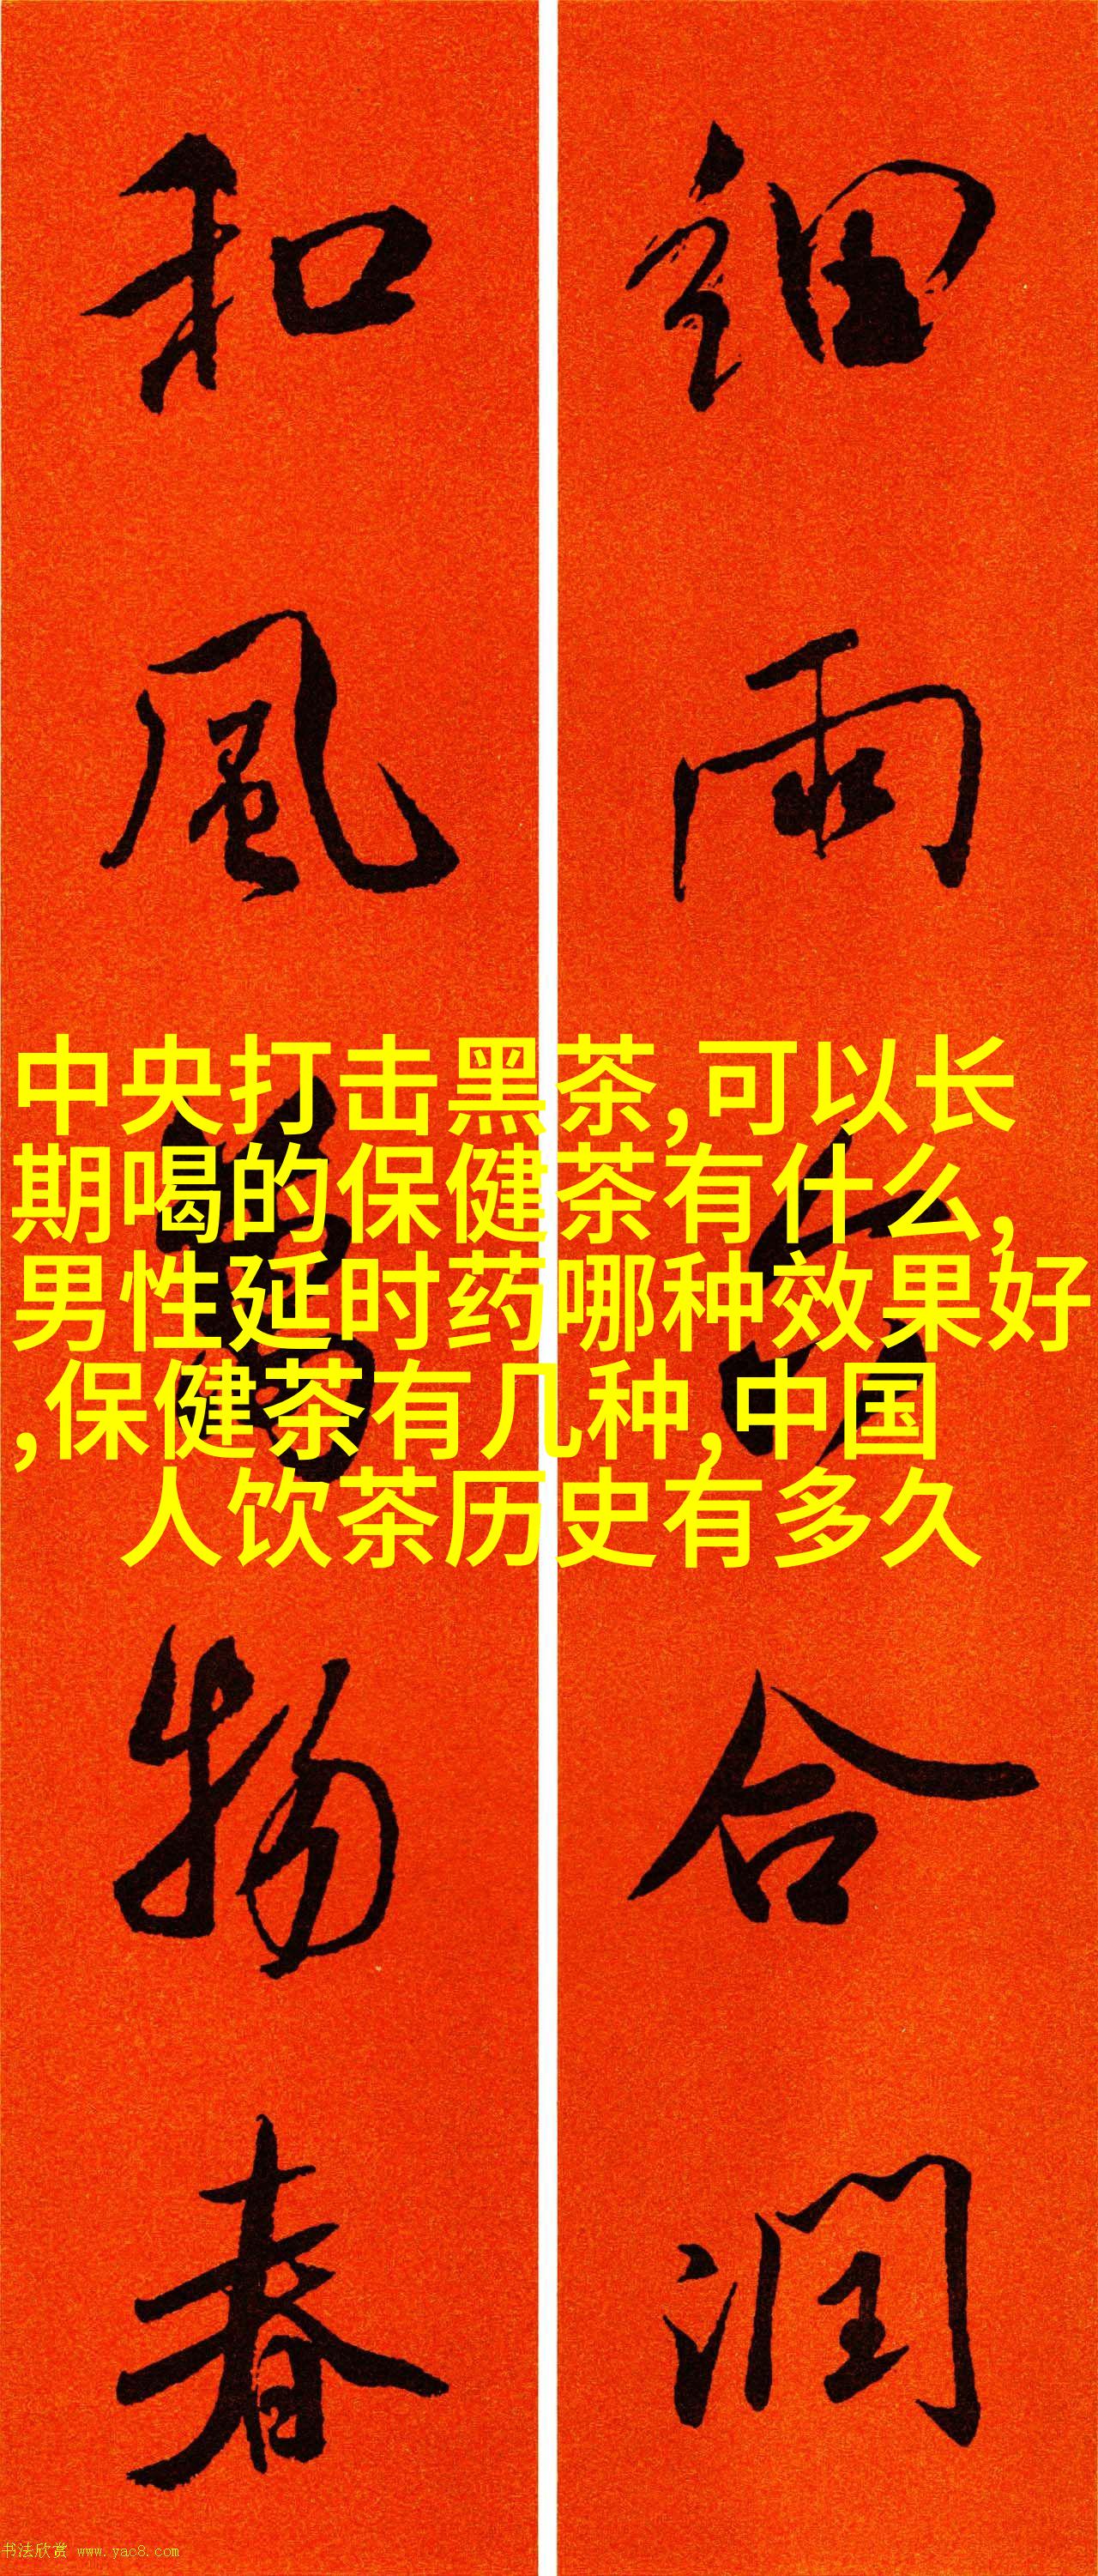 細雨六合潤
和風萬物春
中央打击黑茶,可以长
期喝的保健茶有什么,
男性延时药哪种效果好
,保健茶有几种,中国
人饮茶历史有多久
书法欣赏 www.yac8.com